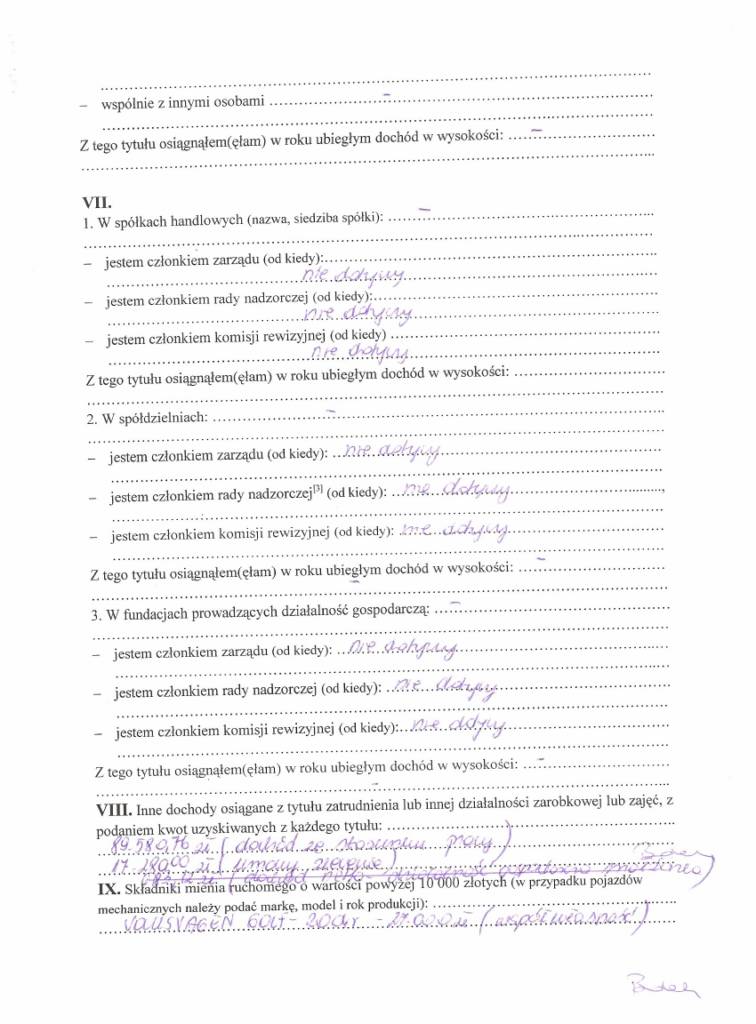 – wspólnie z innymi osobami ........ – ........
Z tego tytułu osiągnąłem(ęłam) w roku ubiegłym dochód w wysokości: ...... – ......
VII.
1. W spółkach handlowych (nazwa, siedziba spółki): ...... – ......
– jestem członkiem zarządu (od kiedy):......
nie dotyczy
– jestem członkiem rady nadzorczej (od kiedy):......
nie dotyczy
– jestem członkiem komisji rewizyjnej (od kiedy) ......
nie dotyczy
Z tego tytułu osiągnąłem(ęłam) w roku ubiegłym dochód w wysokości: ......
2. W spółdzielniach: ...... – ......
– jestem członkiem zarządu (od kiedy): ... nie dotyczy ......
– jestem członkiem rady nadzorczej[3] (od kiedy): ... nie dotyczy ......,
– jestem członkiem komisji rewizyjnej (od kiedy): nie dotyczy ......
Z tego tytułu osiągnąłem(ęłam) w roku ubiegłym dochód w wysokości: ... – ......
–
3. W fundacjach prowadzących działalność gospodarczą: ... – ......
– jestem członkiem zarządu (od kiedy): ... nie dotyczy ......
– jestem członkiem rady nadzorczej (od kiedy): ... nie dotyczy ......
– jestem członkiem komisji rewizyjnej (od kiedy):... nie dotyczy ......
Z tego tytułu osiągnąłem(ęłam) w roku ubiegłym dochód w wysokości: ... – ......
–
VIII. Inne dochody osiągane z tytułu zatrudnienia lub innej działalności zarobkowej lub zajęć, z
podaniem kwot uzyskiwanych z każdego tytułu: ......
89.580,76 zł (dochód ze stosunku pracy)
17.280,00 zł (umowy zlecenie)
IX. Składniki mienia ruchomego o wartości powyżej 10 000 złotych (w przypadku pojazdów
mechanicznych należy podać markę, model i rok produkcji): ......
VOLKSVAGEN GOLF - 2004r - 27.000 zł (współwłasność)